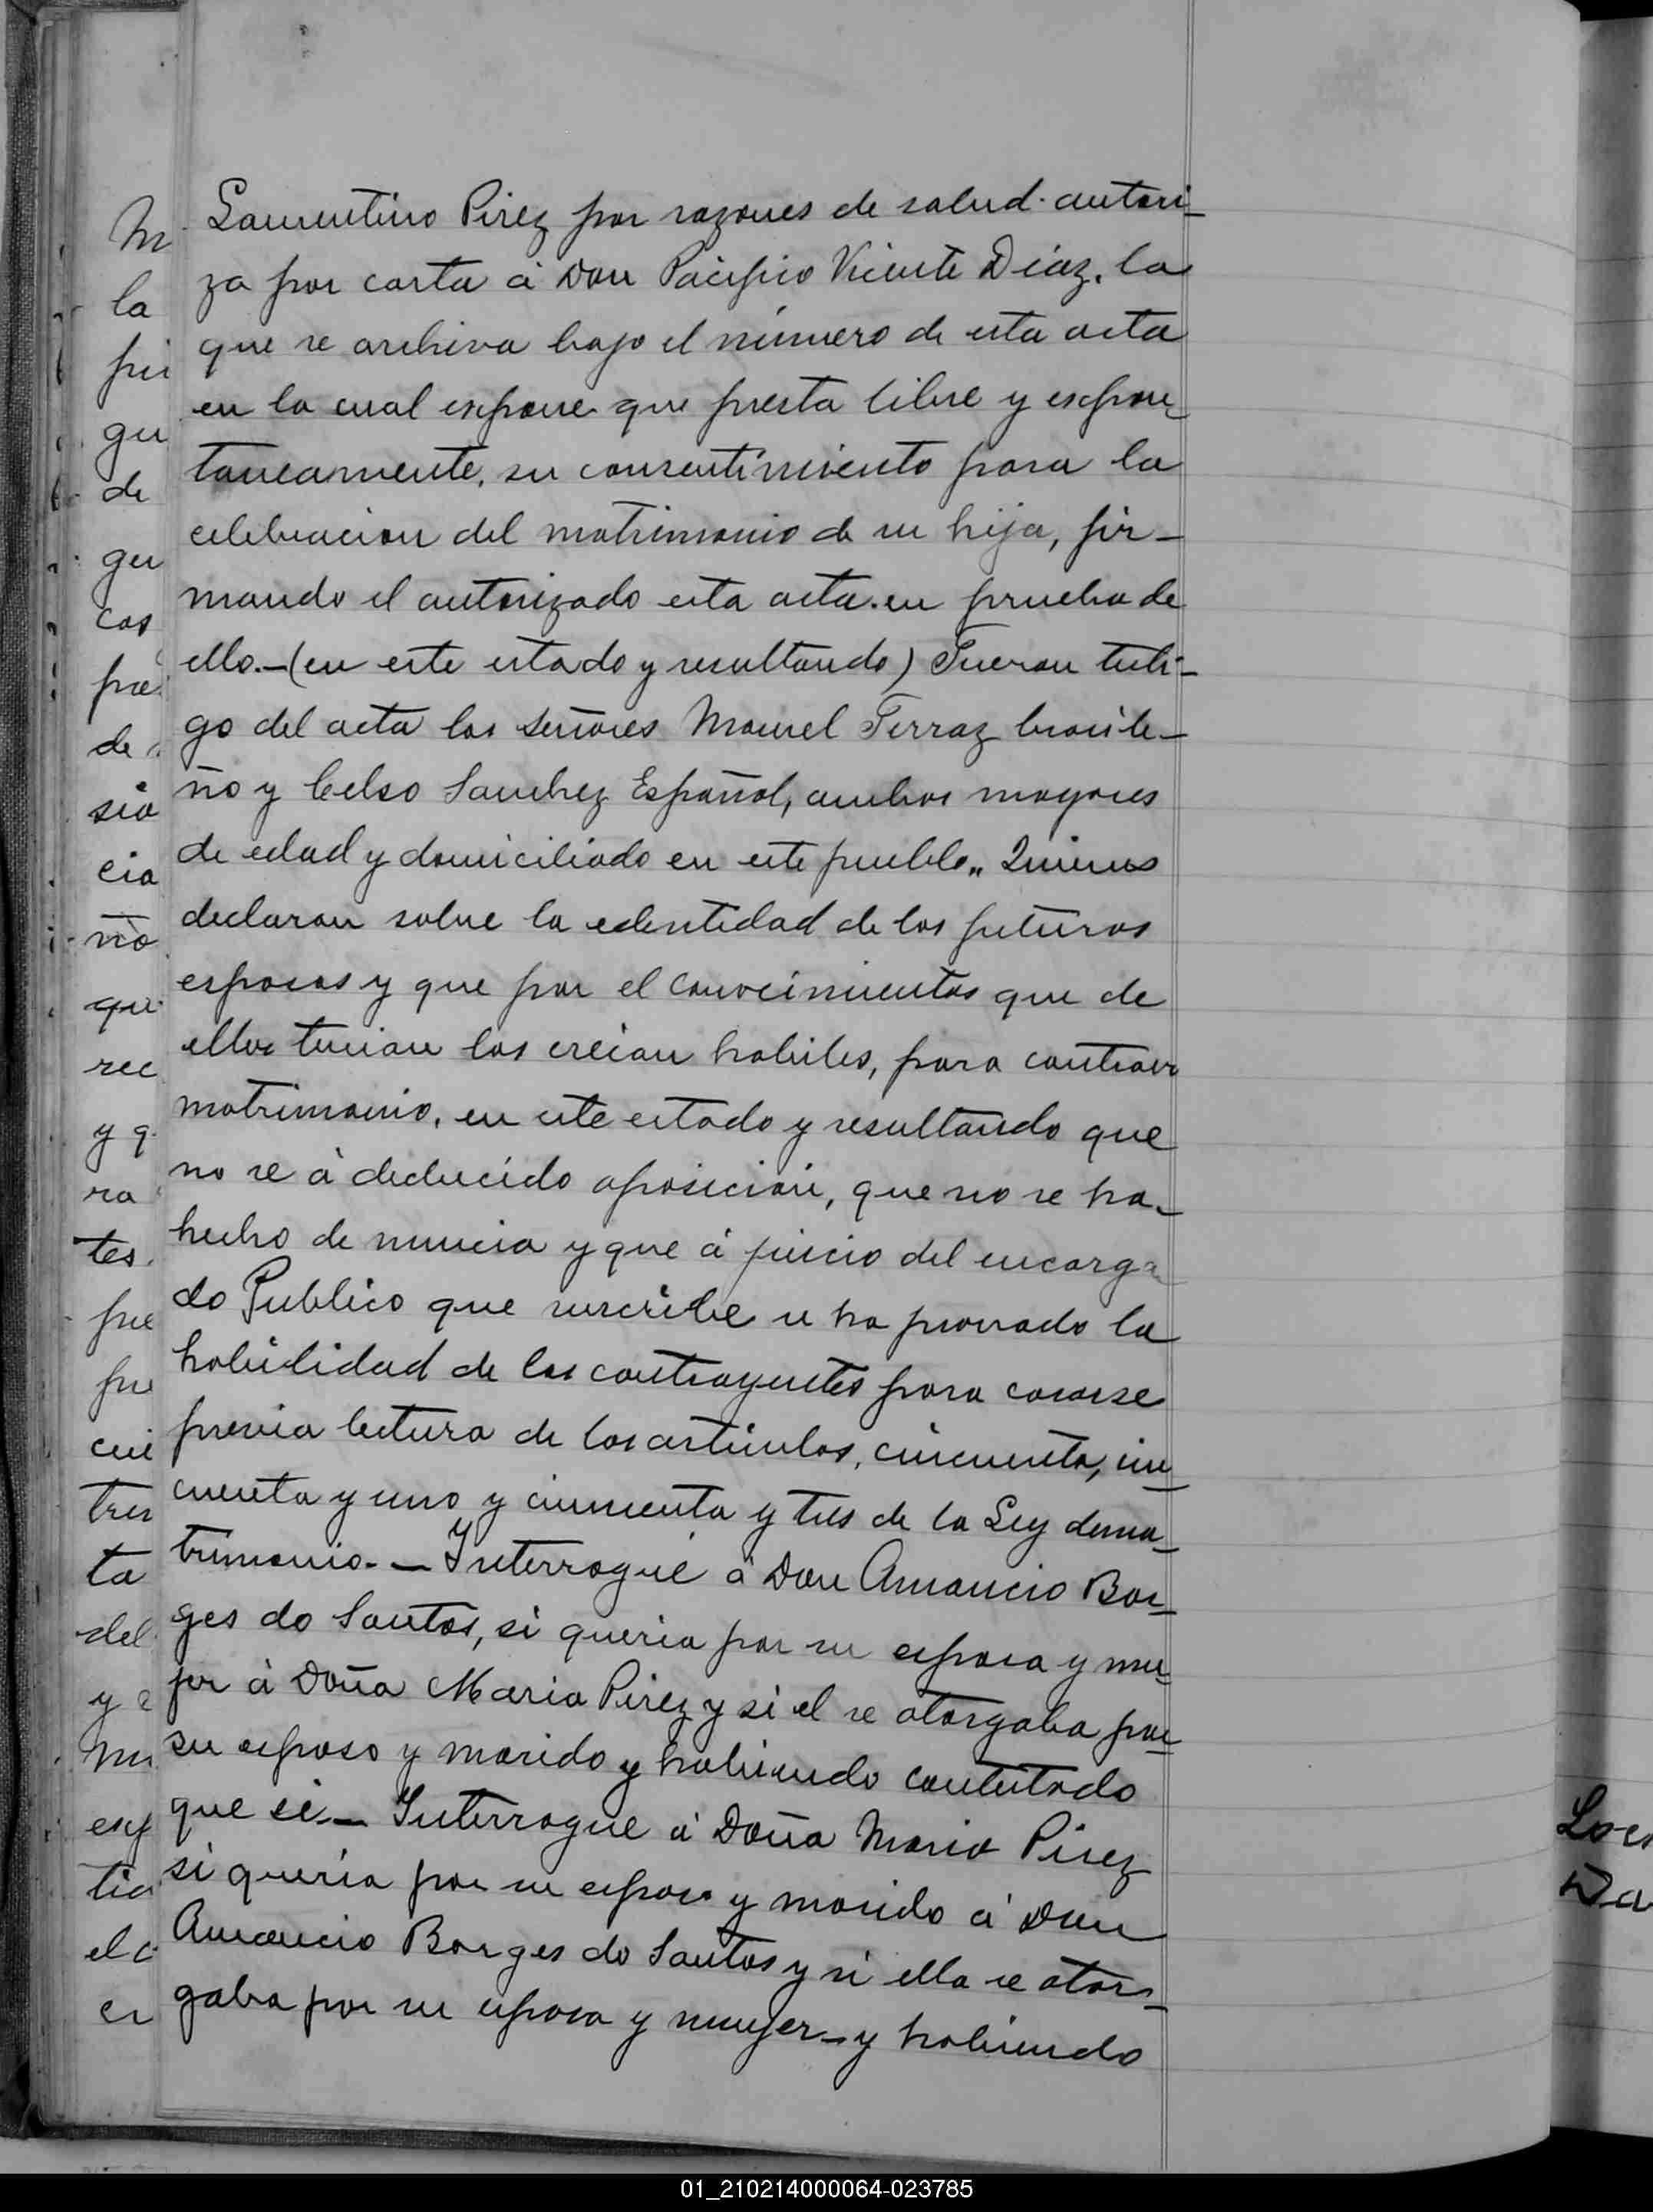 Laurentino Pirez por razones de salud. autori_
za por carta á Don Pacifico Vicente Díaz. la
que se archiva bajo el número de esta acta
en la cual expone que presta libre y expon_
taneamente, su consentimiento para la
celebracion del matrimonio de su hija, fir_
mando el autorizado esta acta. en prueba de
ello.—(en este estado y resultando) Fueron testi_
go del acta los señores Manuel Ferraz brasile_
ño y Celso Sanchez Español, ambos mayores
de edad y domiciliado en este pueblo,, Quienes
declaran sobre la edentidad de los futuros
esposos y que por el conocimientos que de
ellos tenian los creian habiles, para contraer
matrimonio, en este estado y resultando que
no se á deducido oposición, que no se ha_
hecho de nuncia y que á juicio del encarga
do Publico que suscribe se ha provado la
habilidad de los contrayentes para casarse
previa lectura de los artículos, cincuenta, cin_
cuenta y uno y cincuenta y tres de la Ley de ma_
trimonio. — Interrogué á Don Amancio Bor_
ges do Santos, si queria por su esposa y mu_
jer á Doña Maria Pirez y si el se otorgaba por_
su esposo y marido y habiendo contestado
que si.— Interrogue á Doña Maria Pirez
si quería por su esposo y marido á Don
Amancio Borges do Santos y si ella se otor_
gaba por su esposa y mujer_ y habiendo
M
la
pi
gu
de
gu
cas
pa
de
sia
cia
ño
que
rec
y q
ra
tes
pue
pu
cui
tres
ta
del
y
exp
tia
el
en
Da
01_210214000064-023785